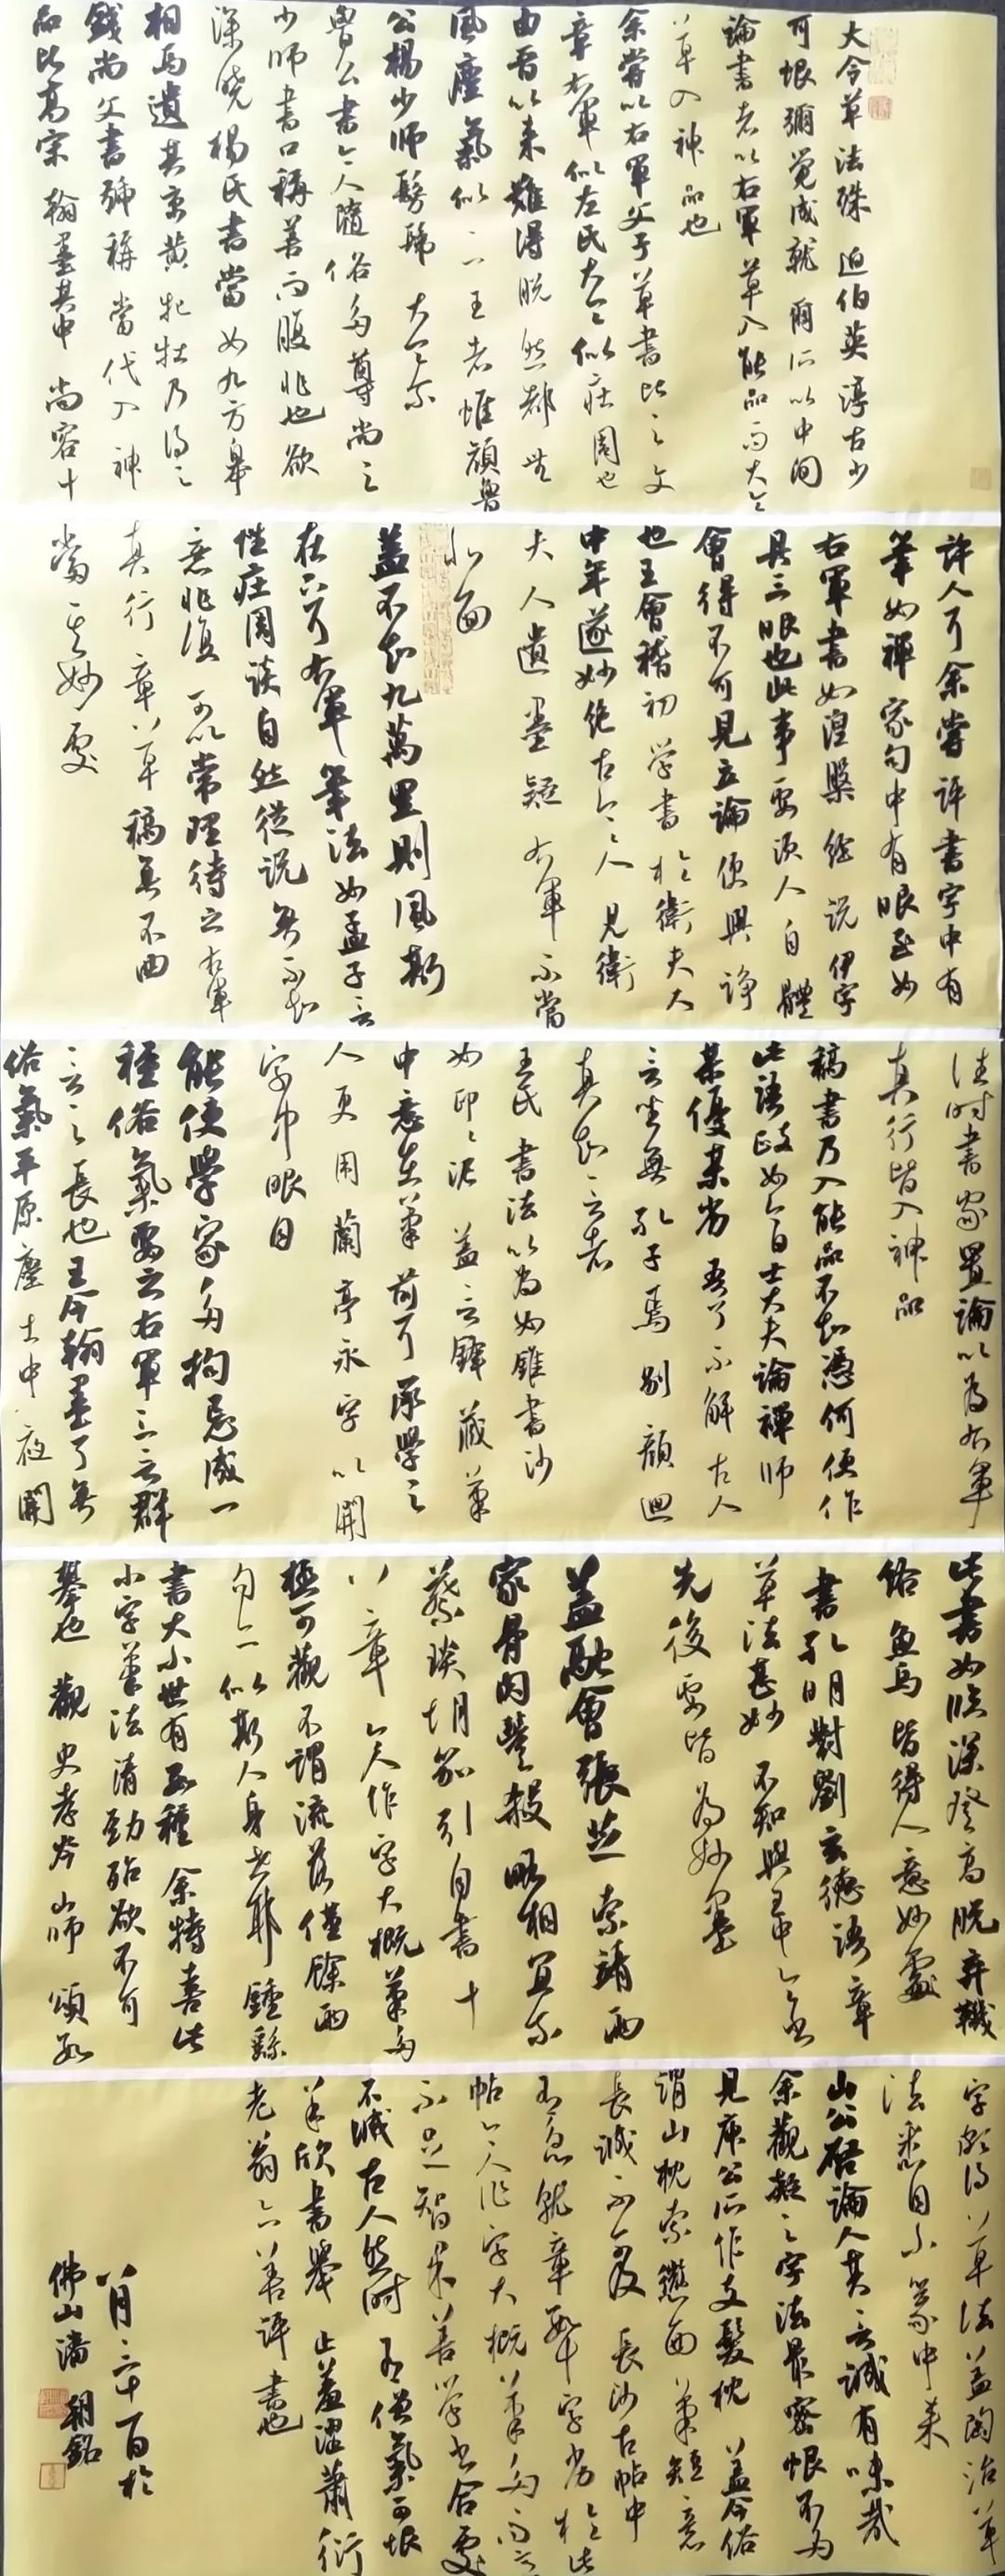 大令草法殊迫伯英淳古少
可恨彌覺成就爾所以中間
論書者以右軍草入能品而大令
草入神品也
余嘗以右軍父子草書比之文
章右軍似左氏大令似莊周也
由晉以來難得脫然都無
風塵氣似二王者惟顏魯
公楊少師髣髴大令尔
魯公書今人隨俗多尊尚之
少師書口稱善而腹非也欲
深曉楊氏書當如九方皋
相馬遺其玄黃牝牡乃得之
錢尚父書號稱當代入神
品比高宗翰墨其中尚容十
許人耳余嘗評書字中有
筆如禪家句中有眼至如
右軍書如涅槃經說伊字
具三眼也此事要須人自體
會得不可見立論便興諍
也王會稽初學書於衛夫人
中年遂妙絕古今人見衛
夫人遺墨疑右軍不當
北面
蓋不知九萬里則風斯
在下耳右軍筆法如孟子言
性莊周談自然從說無不知
意非復可以常理待之右軍
真行章草稿無不曲
當其妙處
往時書家置論以為右軍
真行皆入神品
稿書乃入能品不知憑何便作
此語政如今日士大夫論禪師
某優某劣吾了不解古人
言坐無孔子焉別顏回
真知言者
王氏書法以為如錐畫沙
如印印泥蓋言鋒藏筆
中意在筆前耳承學之
人更用蘭亭永字以開
字中眼目
能使學家多拘忌成一
種俗氣要之右軍二言群
言之長也王令翰墨了無
俗氣平原塵土中夜開
此書如臨深登高脫棄羈
絡魚鳥皆得人意妙處
書孔明對劉玄德語章
草法甚妙不知與王中令書
先後要皆為妙墨
蓋融會張芝索靖兩
家骨肉豐殺略相宜尔
蔡琰胡笳引自書十
八章今人作字大概筆多
極可觀不謂流落僅餘兩
句亦似斯人身世耶鍾繇
書大小世有數種余特喜此
小字筆法清勁殆欲不可
攀也觀史孝岑出師頌數
字頗得草法蓋陶冶草
法悉自小篆中來
山公啟論人其言誠有味哉
余觀凝之字法最密恨不多
見庾公所作支髮枕蓋今俗
謂山枕索繼面筆短意
長誠不可及長沙古帖中
有急就章數十字劣於此
帖今人作字大概筆多而意
不足智果善學書合處
不減古人然時有僧氣可恨
羊欣書舉止羞澀蕭衍
老翁亦善評書也
八月二十一日於
佛山潘朝銘